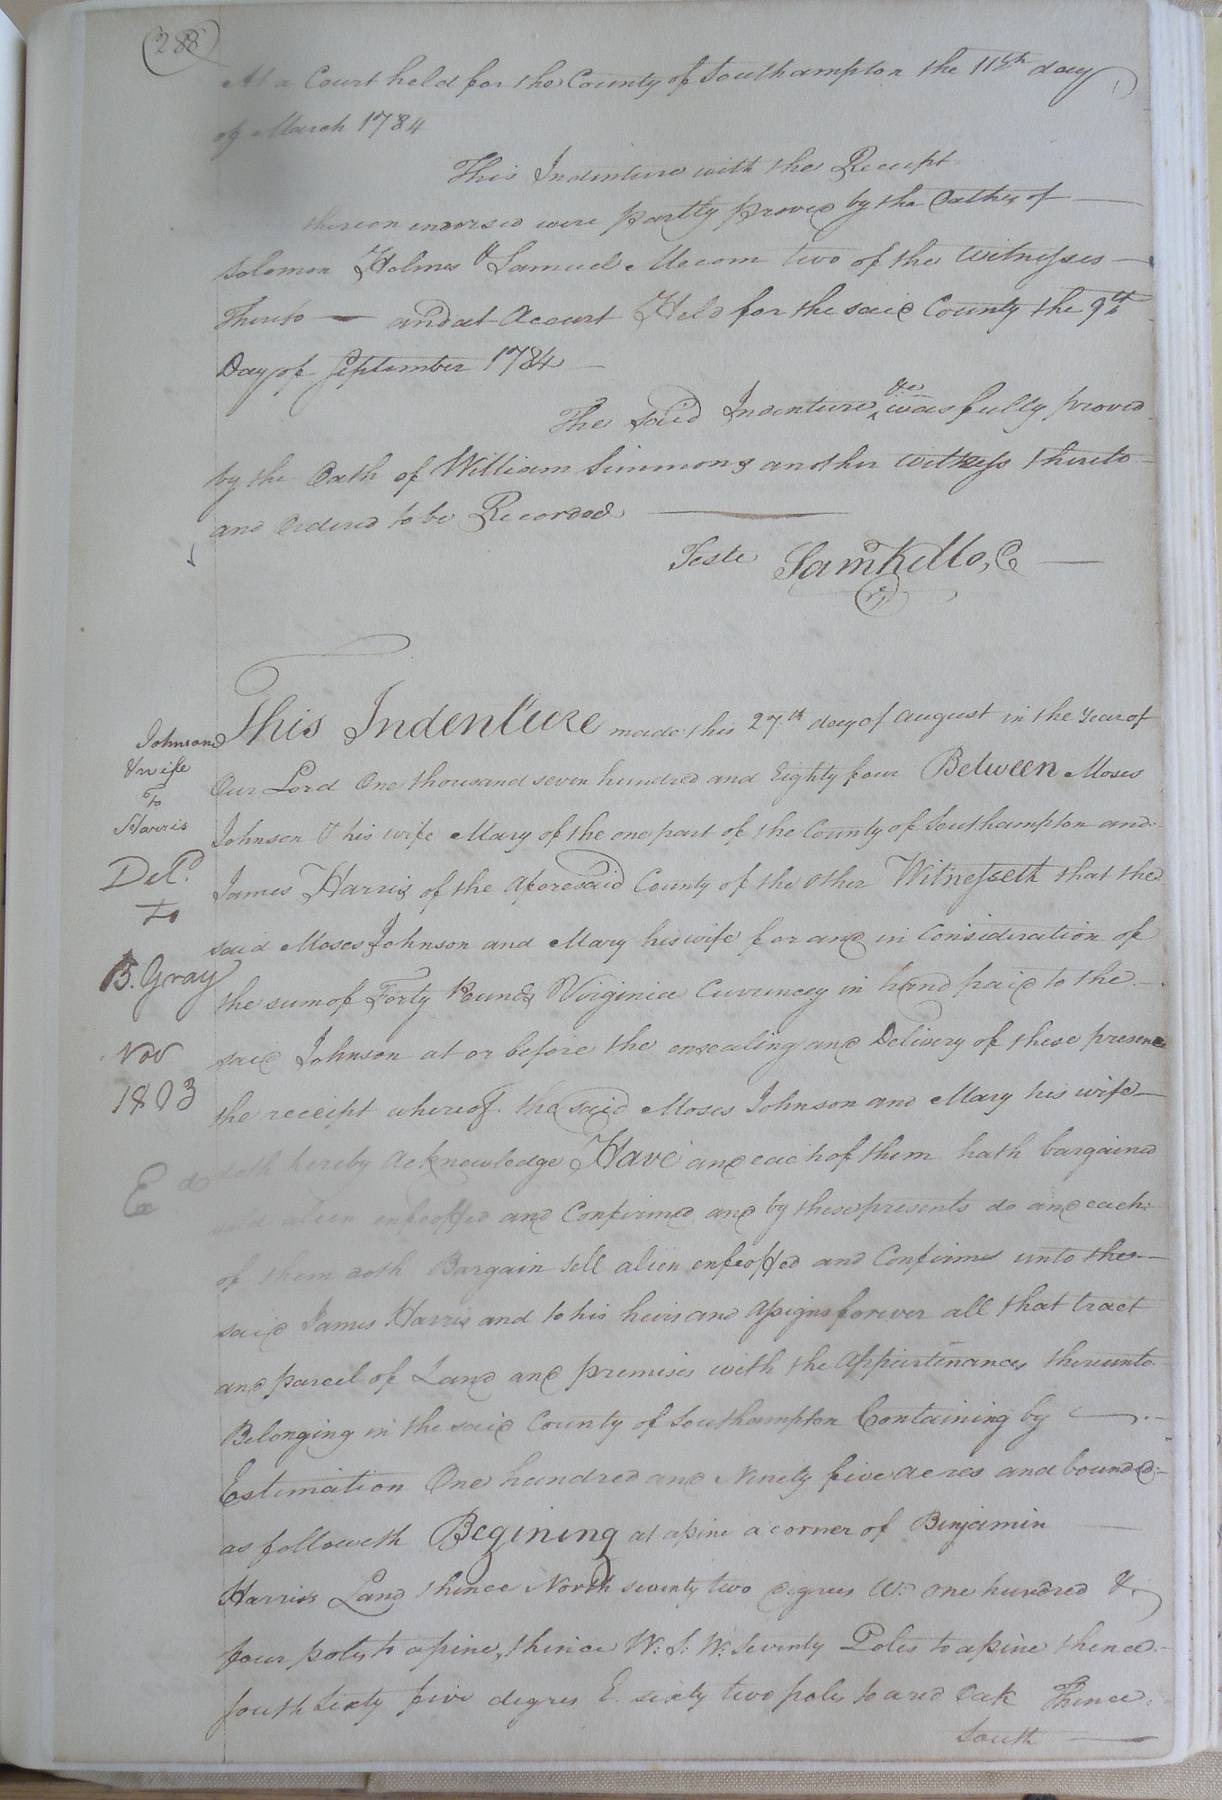 288
At a Court held for the County of Southampton the 11th day
of March 1784
This Indenture with the Receipt
thereon endorsed were partly proved by the Oaths of
Solomon Holmes & Samuel Mecom two of the Witnesses
Thereto — and at A Court Held for the said County the 9th
Day of September 1784
The Said Indenture &c was fully proved
by the Oath of William Simmons another witness thereto
and Ordered to be Recorded
Teste Sam Kello, C
This Indenture made this 27.th day of August in the Year of
Our Lord One thousand seven hundred and Eighty four Between Moses
Johnson & his wife Mary of the one part of the County of Southampton and
James Harris of the Aforesaid County of the other Witnesseth that the
said Moses Johnson and Mary his wife for and in Consideration of
the sum of Forty Pounds Virginia Currencey in hand paid to the
said Johnson at or before the ensealing and Delivery of these presence
the receipt whereof the said Moses Johnson and Mary his wife
doth hereby Acknowledge Have and each of them hath bargained
sold alien enfeoffed and Confirmed and by these presents do and each
of them doth Bargain Sell alien enfeoffed and Confirme unto the
said James Harris and to his heirs and Assigns forever all that tract
and parcel of Land and premises with the Appurtenances thereunto
Belonging in the said County of Southampton Containing by
Estimation One hundred and Ninety five acres and bounded
as followeth Begining at a pine a corner of Benjamin
Harriss Land thence North seventy two degrees W: One hundred &
four poles to a pine, thence W: S: W: Seventy Poles to a pine thence
South Sixty five degres E. sixty two poles to a red Oak Thence
South
Johnson
& wife
To
Harris
Del.d
to
B. Gray
Nov
1803
Ex